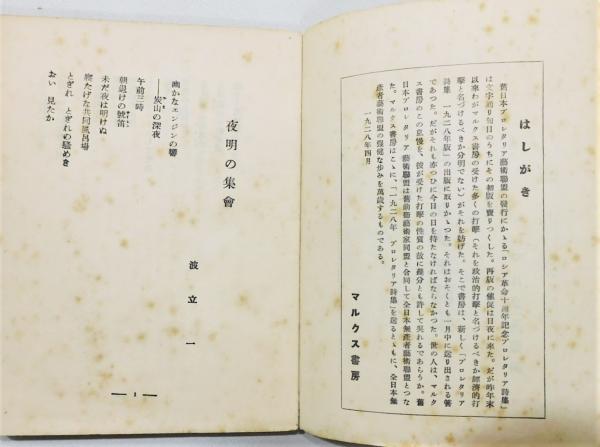 はしがき
舊日本プロレタリア藝術聯盟の發行にかゝる『ロシア革命十周年記念プロレタリア詩集』
は文字通り旬日のうちにその初版を賣りつくした。再版の催促は日夜に来た。だが昨年末
以來わがマルクス書房の受けた多くの打撃(それを政治的打撃と名づけるべきか經濟的打
撃と名づけるべきか分明でない)がそれを妨げた。そこで書房は、新しく『プロレタリア
詩集 一九二八年版』の出版に取りかゝつた。それはおそくとも一月中に送り出される筈
であつた。だがそれも亦つひに今日の日を待たなければならなかつた。世の人は、マルク
ス書房のこの怠慢を、彼が受けた打撃の性質の故に幾分とも許して呉れるであらうか。舊
日本プロレタリア藝術聯盟は舊前衞藝術家同盟と合同して全日本無產者藝術聯盟とつな
た。マルクス書房はこゝに、『一九二八年 プロレタリア詩集』を送るとゝもに、全日本無
產者藝術聯盟の保健な歩みを萬歲するものである。
一九二八年四月
マルクス書房
夜明の集會
波立一
幽かなエンジンの響
――炭山の深夜
午前三時
朝退けの號笛
未だ夜は明けぬ
寢たげな共同風呂場
とぎれ とぎれの騷めき
おい 見たか
― 1 ―